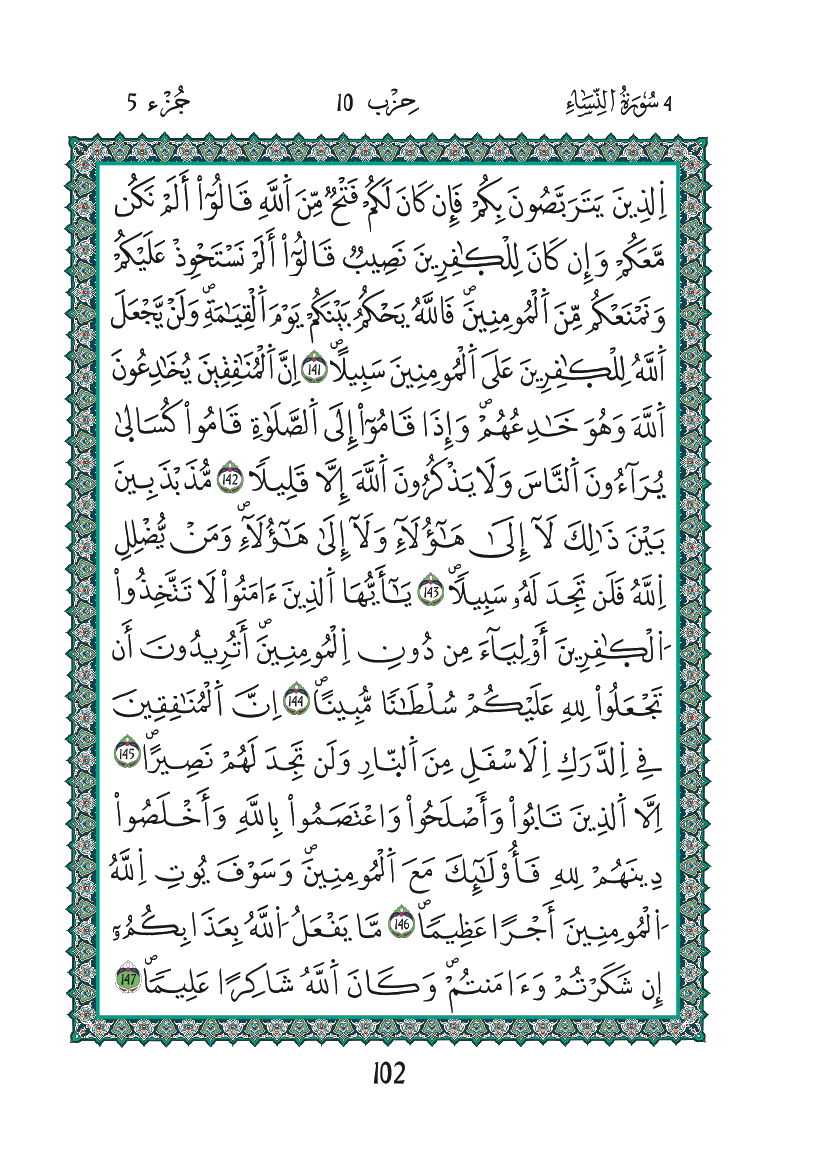 4 سُورَةُ النِّسَاءِ حِزْب 10 جُزْء 5
اِ۬لذِينَ يَتَرَبَّصُونَ بِكُمْ فَإِن كَانَ لَكُمْ فَتْحٌ مِّنَ اَ۬للَّهِ قَالُوٓاْ أَلَمْ نَكُن
مَّعَكُمْ وَإِن كَانَ لِلْكٰفِرِينَ نَصِيبٌ قَالُوٓاْ أَلَمْ نَسْتَحْوِذْ عَلَيْكُمْ
وَنَمْنَعْكُم مِّنَ اَ۬لْمُومِنِينَۖ فَاللَّهُ يَحْكُمُ بَيْنَكُمْ يَوْمَ اَ۬لْقِيَٰمَةِۖ وَلَنْ يَّجْعَلَ
اَ۬للَّهُ لِلْكٰفِرِينَ عَلَى اَ۬لْمُومِنِينَ سَبِيلًاۖ 141 اِنَّ اَ۬لْمُنَٰفِقِينَ يُخَٰدِعُونَ
اَ۬للَّهَ وَهُوَ خَٰدِعُهُمْۖ وَإِذَا قَامُوٓاْ إِلَى اَ۬لصَّلَوٰةِ قَامُواْ كُسَالٰى
يُرَآءُونَ اَ۬لنَّاسَ وَلَا يَذْكُرُونَ اَ۬للَّهَ إِلَّا قَلِيلًا 142 مُّذَبْذَبِينَ
بَيْنَ ذَٰلِكَ لَآ إِلَىٰ هَٰٓؤُلَآءِ وَلَآ إِلَىٰ هَٰٓؤُلَآءِۖ وَمَنْ يُّضْلِلِ
اِ۬للَّهُ فَلَن تَجِدَ لَهُۥ سَبِيلًاۖ 143 يَٰٓأَيُّهَا اَ۬لذِينَ ءَامَنُواْ لَا تَتَّخِذُواْ
اُ۬لْكٰفِرِينَ أَوْلِيَآءَ مِن دُونِ اِ۬لْمُومِنِينَۖ أَتُرِيدُونَ أَن
تَجْعَلُواْ لِلهِ عَلَيْكُمْ سُلْطَٰنًا مُّبِينًاۖ 144 اِنَّ اَ۬لْمُنَٰفِقِينَ
فِي اِ۬لدَّرَكِ اِ۬لَاسْفَلِ مِنَ اَ۬لنّ۪ارِ وَلَن تَجِدَ لَهُمْ نَصِيرًاۖ 145
اِلَّا اَ۬لذِينَ تَابُواْ وَأَصْلَحُواْ وَاعْتَصَمُواْ بِاللَّهِ وَأَخْلَصُواْ
دِينَهُمْ لِلهِ فَأُوْلَٰٓئِكَ مَعَ اَ۬لْمُومِنِينَۖ وَسَوْفَ يُوتِ اِ۬للَّهُ
اُ۬لْمُومِنِينَ أَجْرًا عَظِيمًاۖ 146 مَّا يَفْعَلُ اُ۬للَّهُ بِعَذَابِكُمُۥٓ
إِن شَكَرْتُمْ وَءَامَنتُمْۖ وَكَانَ اَ۬للَّهُ شَاكِرًا عَلِيمًاۖ 147
102